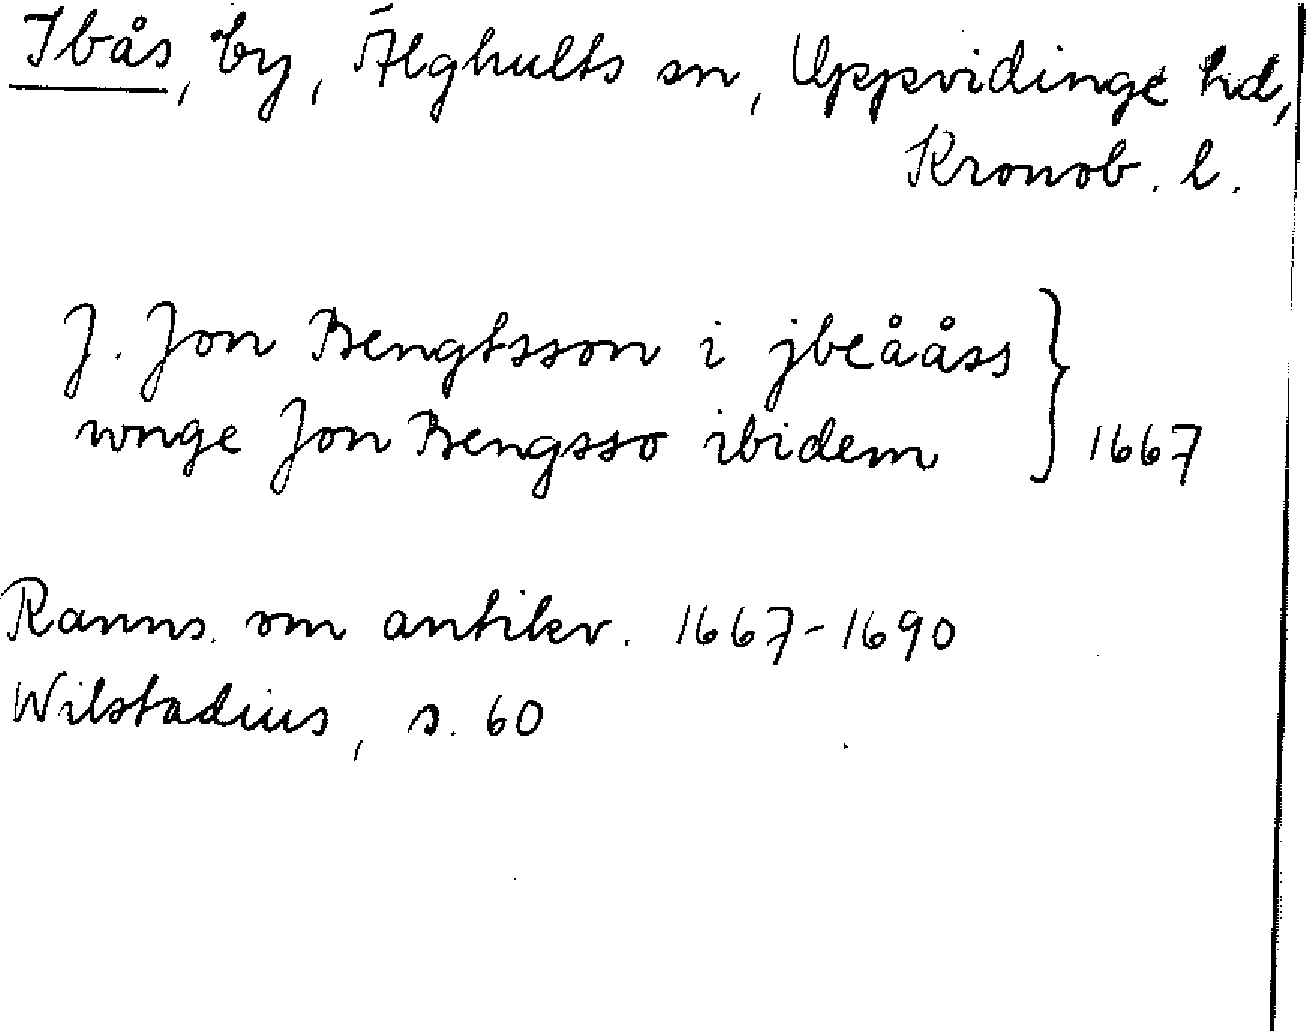 Ibås, by, Älghults sn, Uppvidinge hd,
Kronob. l.
J. Jon Bengtsson i jbeååss
wnge Jon Bengsso ibidem } 1667
Ranns. om antikv. 1667-1690
Wilstadius, s. 60